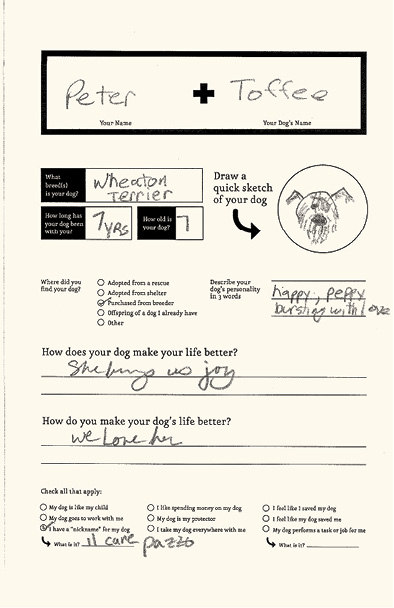 Peter + Toffee
Your Name Your Dog's Name
What breed(s) is your dog? wheaton terrier
How long has your dog been with you? 7 yrs How old is your dog? 7
Draw a quick sketch of your dog
Where did you find your dog?
Adopted from a rescue
Adopted from shelter
Purchased from breeder
Offspring of a dog I already have
Other
Describe your dog's personality in 3 words
happy, peppy
bursting with love
How does your dog make your life better?
She brings us joy
How do you make your dog's life better?
we love her
Check all that apply:
My dog is like my child
My dog goes to work with me
I have a "nickname" for my dog
What is it? il cane pazzo
I like spending money on my dog
My dog is my protector
I take my dog everywhere with me
I feel like I saved my dog
I feel like my dog saved me
My dog performs a task or job for me
What is it?